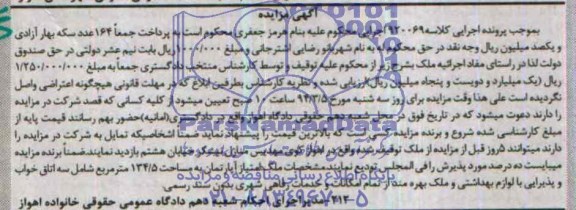 آگهی مزایده
بموجب پرونده اجرایی کلاسه ۹۲۰۰۶۹ اجرایی محکوم علیه بنام هرمز جعفری محکوم است به پرداخت جمعاً ۱۶۴ عدد سکه بهار آزادی
و یکصد میلیون ریال وجه نقد در حق محکوم له به نام شهربانو رضایی اشترجانی و مبلغ ۱/۰۰۰/۰۰۰ ریال بابت نیم عشر دولتی در حق صندوق
دولت لذا در راستای مفاد اجرائیه ملک بشرح زیر از محکوم علیه توقیف و توسط کارشناس منتخب دادگستری جمعاً به مبلغ ۱/۲۵۰/۰۰۰/۰۰۰
ریال (یک میلیارد و دویست و پنجاه میلیون ریال) ارزیابی شده و نظریه کارشناس بطرفین ابلاغ که در مهلت قانونی هیچگونه اعتراضی واصل
نگردیده است علی هذا وقت مزایده برای روز سه شنبه مورخ ۹۴/۳/۵ ساعت ۱۰ صبح تعیین میشود از کلیه کسانی که قصد شرکت در مزایده
را دارند دعوت میشود که در تاریخ فوق در محل شعبه دهم حقوقی دادگاه اهواز واقع در دادگستری (امانیه) حضور بهم رسانند قیمت پایه از
مبلغ کارشناسی شده شروع و برنده مزایده کسی است که بالاترین قیمت را پیشنهاد نماید ضمناً اشخاصیکه تمایل به شرکت در مزایده را
دارند میتوانند ۵ روز قبل از مزایده از ملک توقیف شده واقع در اهواز کوی مهدیس خیابان هشتم بازدید نمایند ضمناً برنده مزایده
میبایست ده درصد مورد پذیرش را فی المجلس تودیع نمایند مشخصات ملک ششدانگ آپارتمان به مساحت ۱۳۴/۵ مترمربع شامل سه اتاق خواب
و پذیرایی با لوازم بهداشتی و ملک بهره مند از تمام امکانات و خدمات رفاهی شهری بدون سند رسمی
مدیر اجرای احکام شعبه دهم دادگاه عمومی حقوقی خانواده اهواز
ParsNamadData
پایگاه اطلاع رسانی مناقصه و مزایده